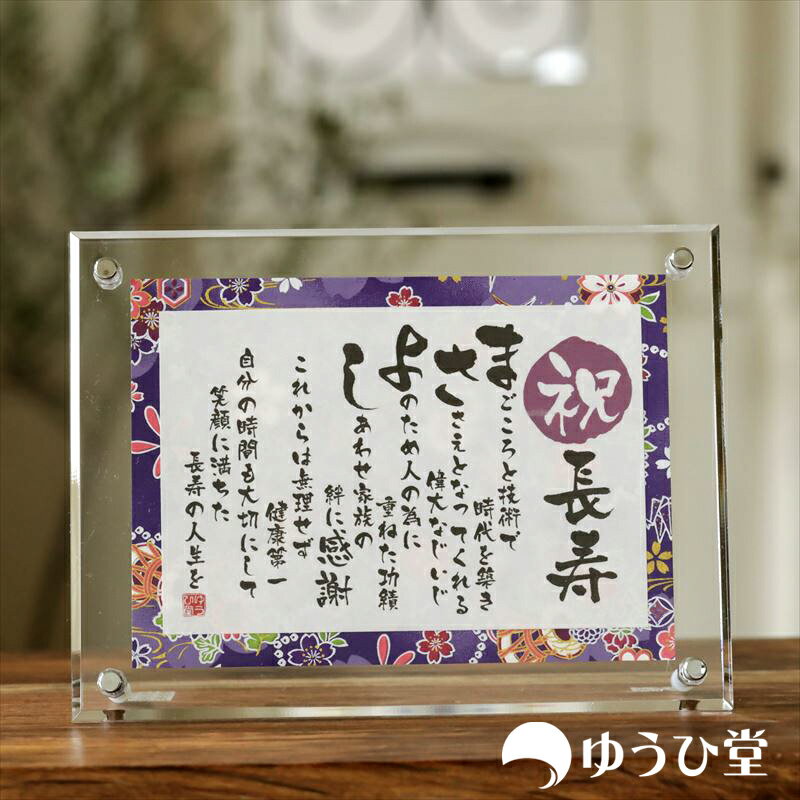 祝
長寿
まごころと技術で
時代を築き
ささえとなってくれる
偉大なじいじ
よのため人の為に
重ねた功績
しあわせ家族の
絆に感謝
これからは無理せず
健康第一
自分の時間も大切にして
笑顔に満ちた
長寿の人生を
ゆうひ堂
ゆうひ堂